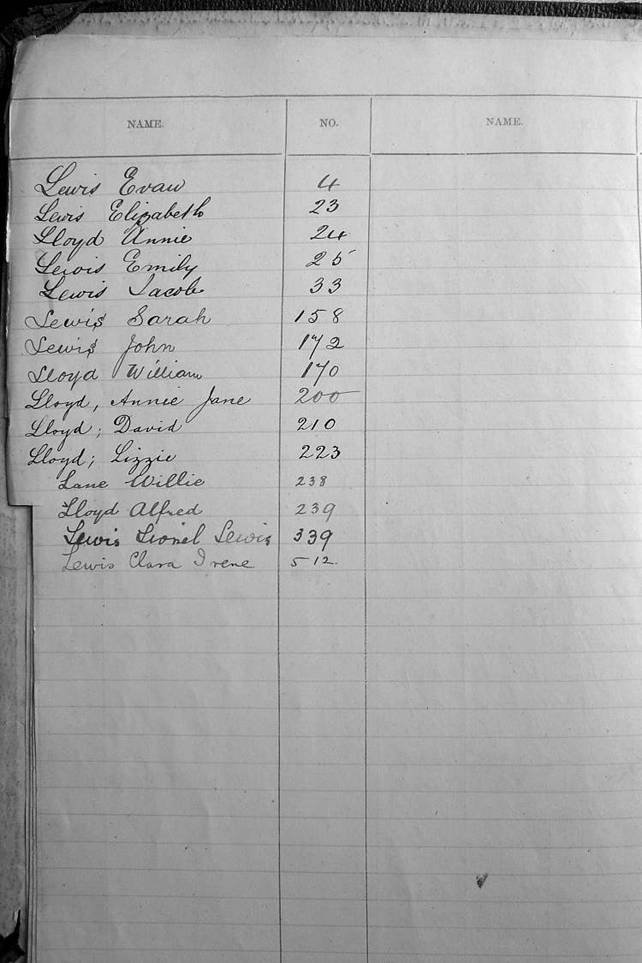 NAME. NO. NAME.
Lewis Evan 4
Lewis Elizabeth 23
Lloyd Annie 24
Lewis Emily 25
Lewis Jacob 33
Lewis Sarah 158
Lewis John 172
Lloyd William 170
Lloyd, Annie Jane 200
Lloyd; David 210
Lloyd; Lizzie 223
Lane Willie 238
Lloyd Alfred 239
Lewis Lionel Lewis 339
Lewis Clara Irene 512